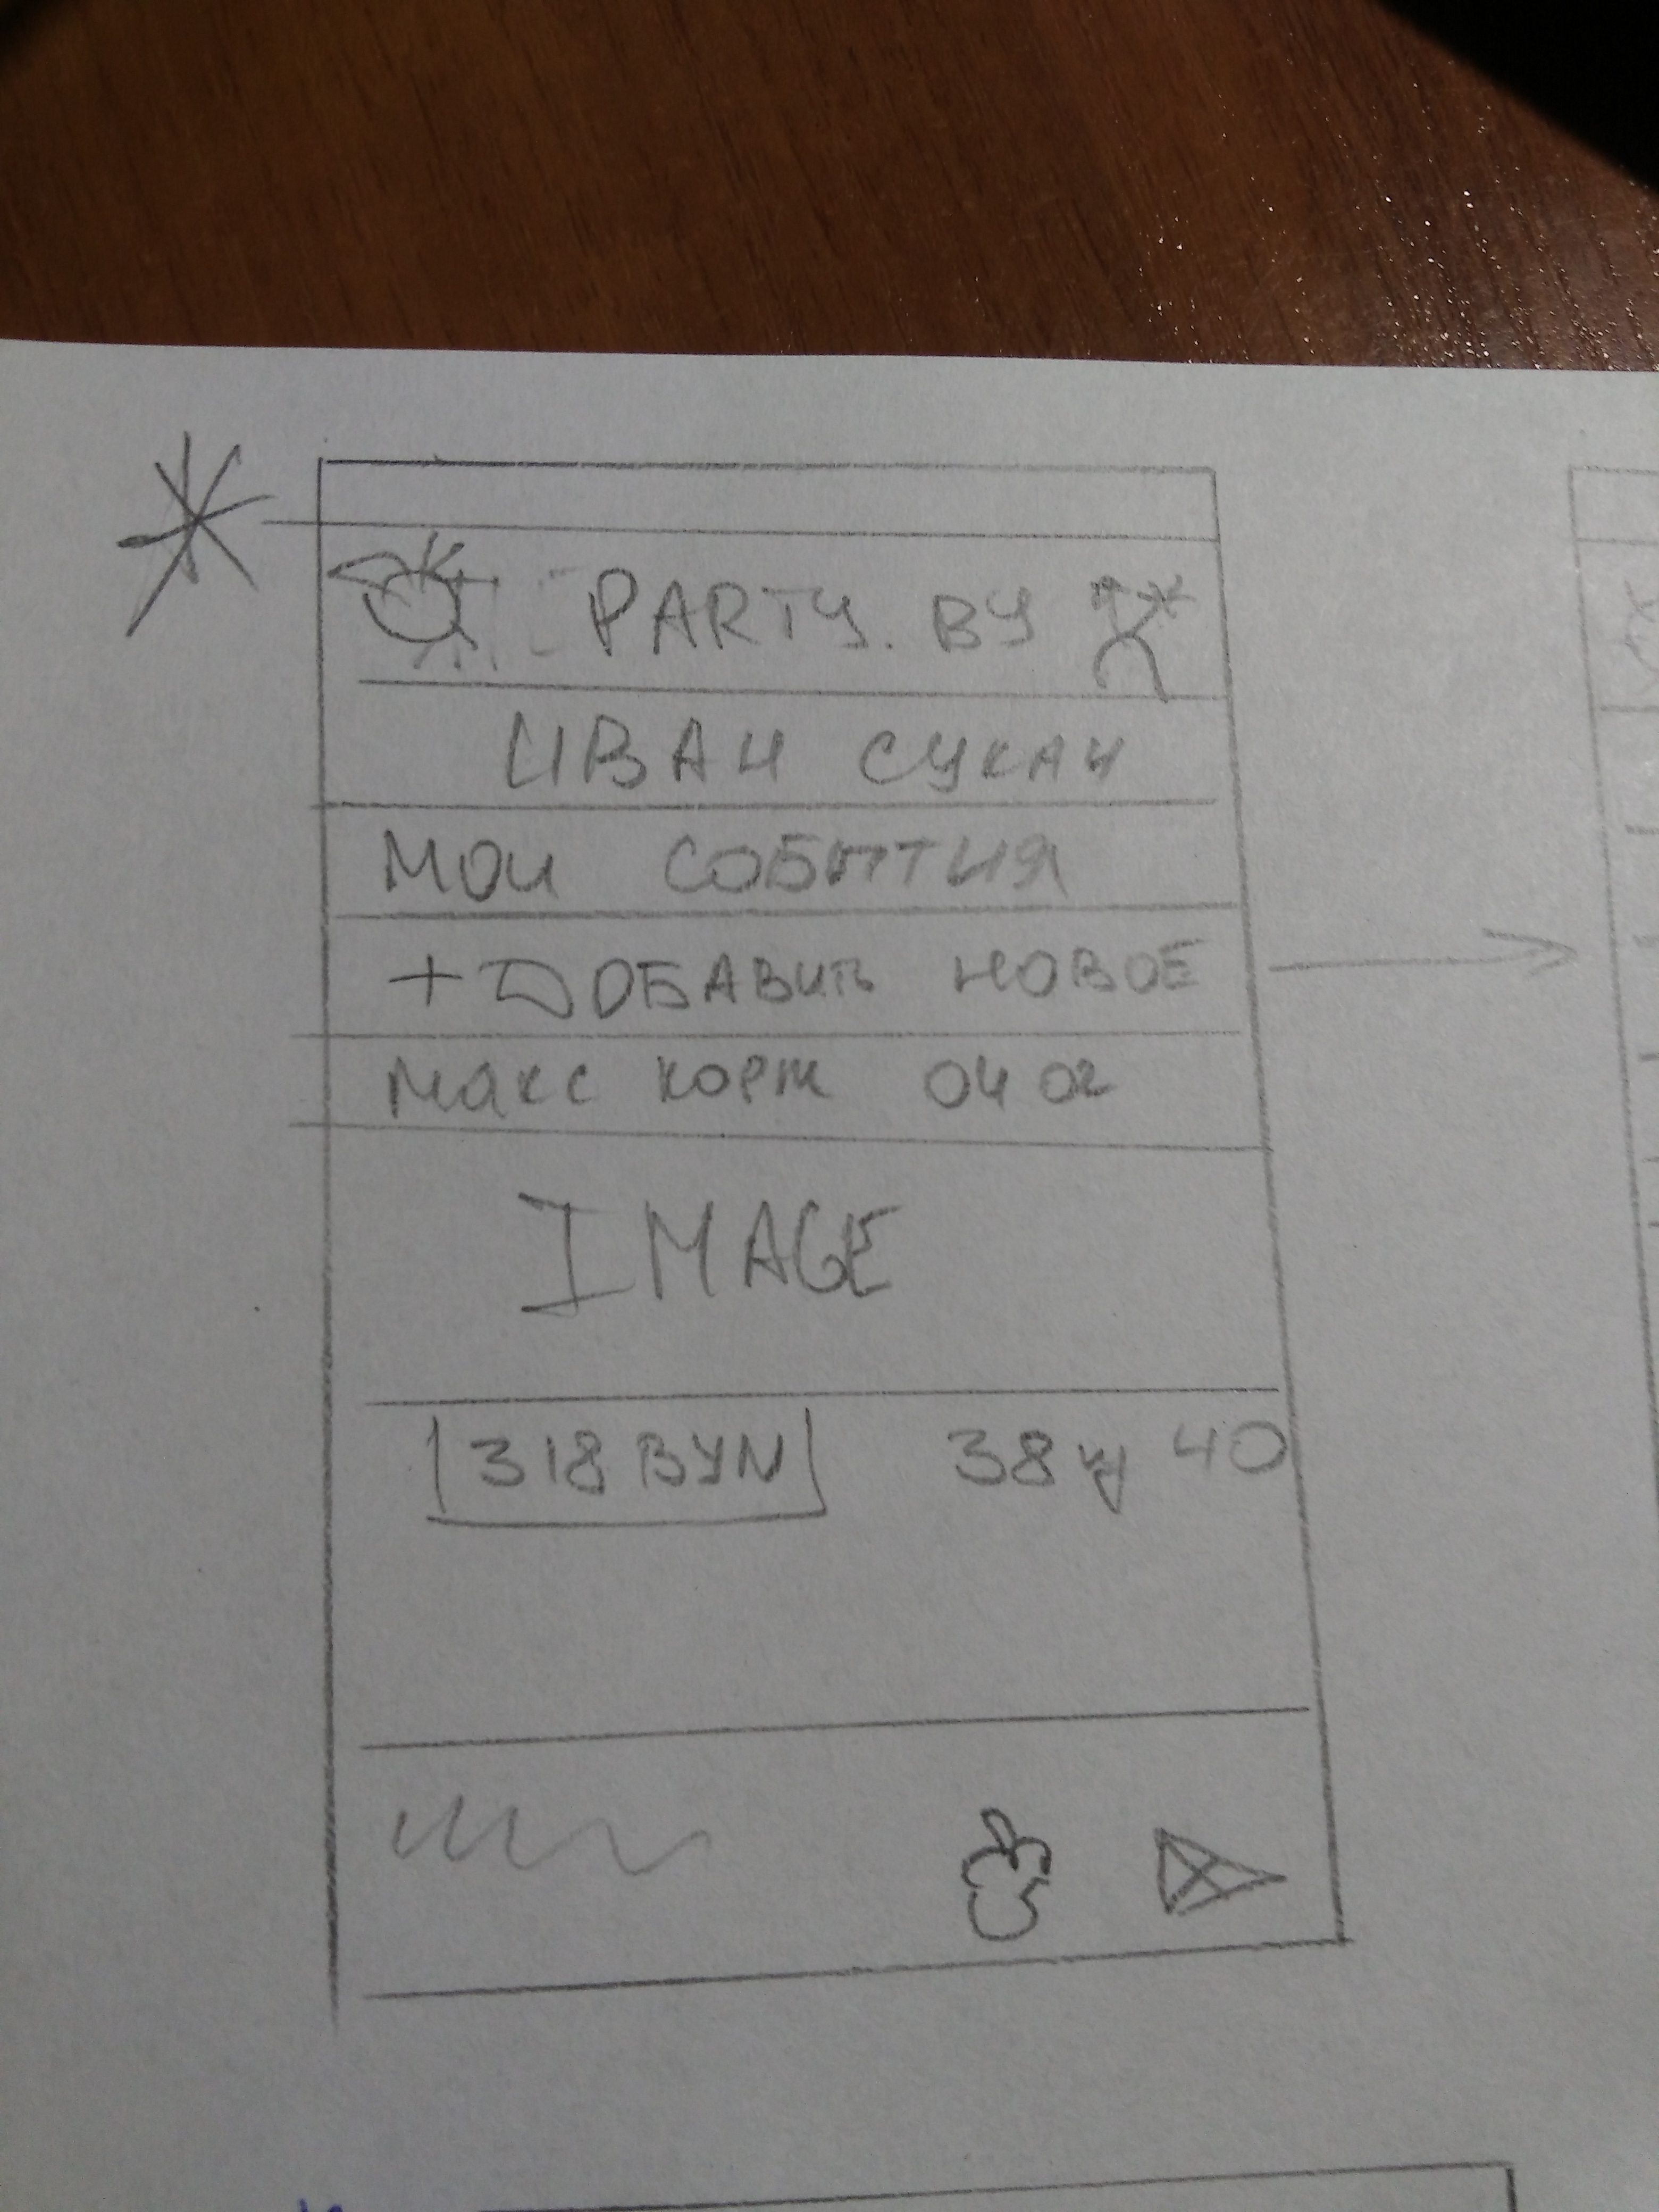 PARTY. BY
ИВАН СУКАН
МОИ СОБЫТИЯ
+ ДОБАВИТЬ НОВОЕ
МАКС КОРЖ 04 02
IMAGE
318 BYN 38 из 40